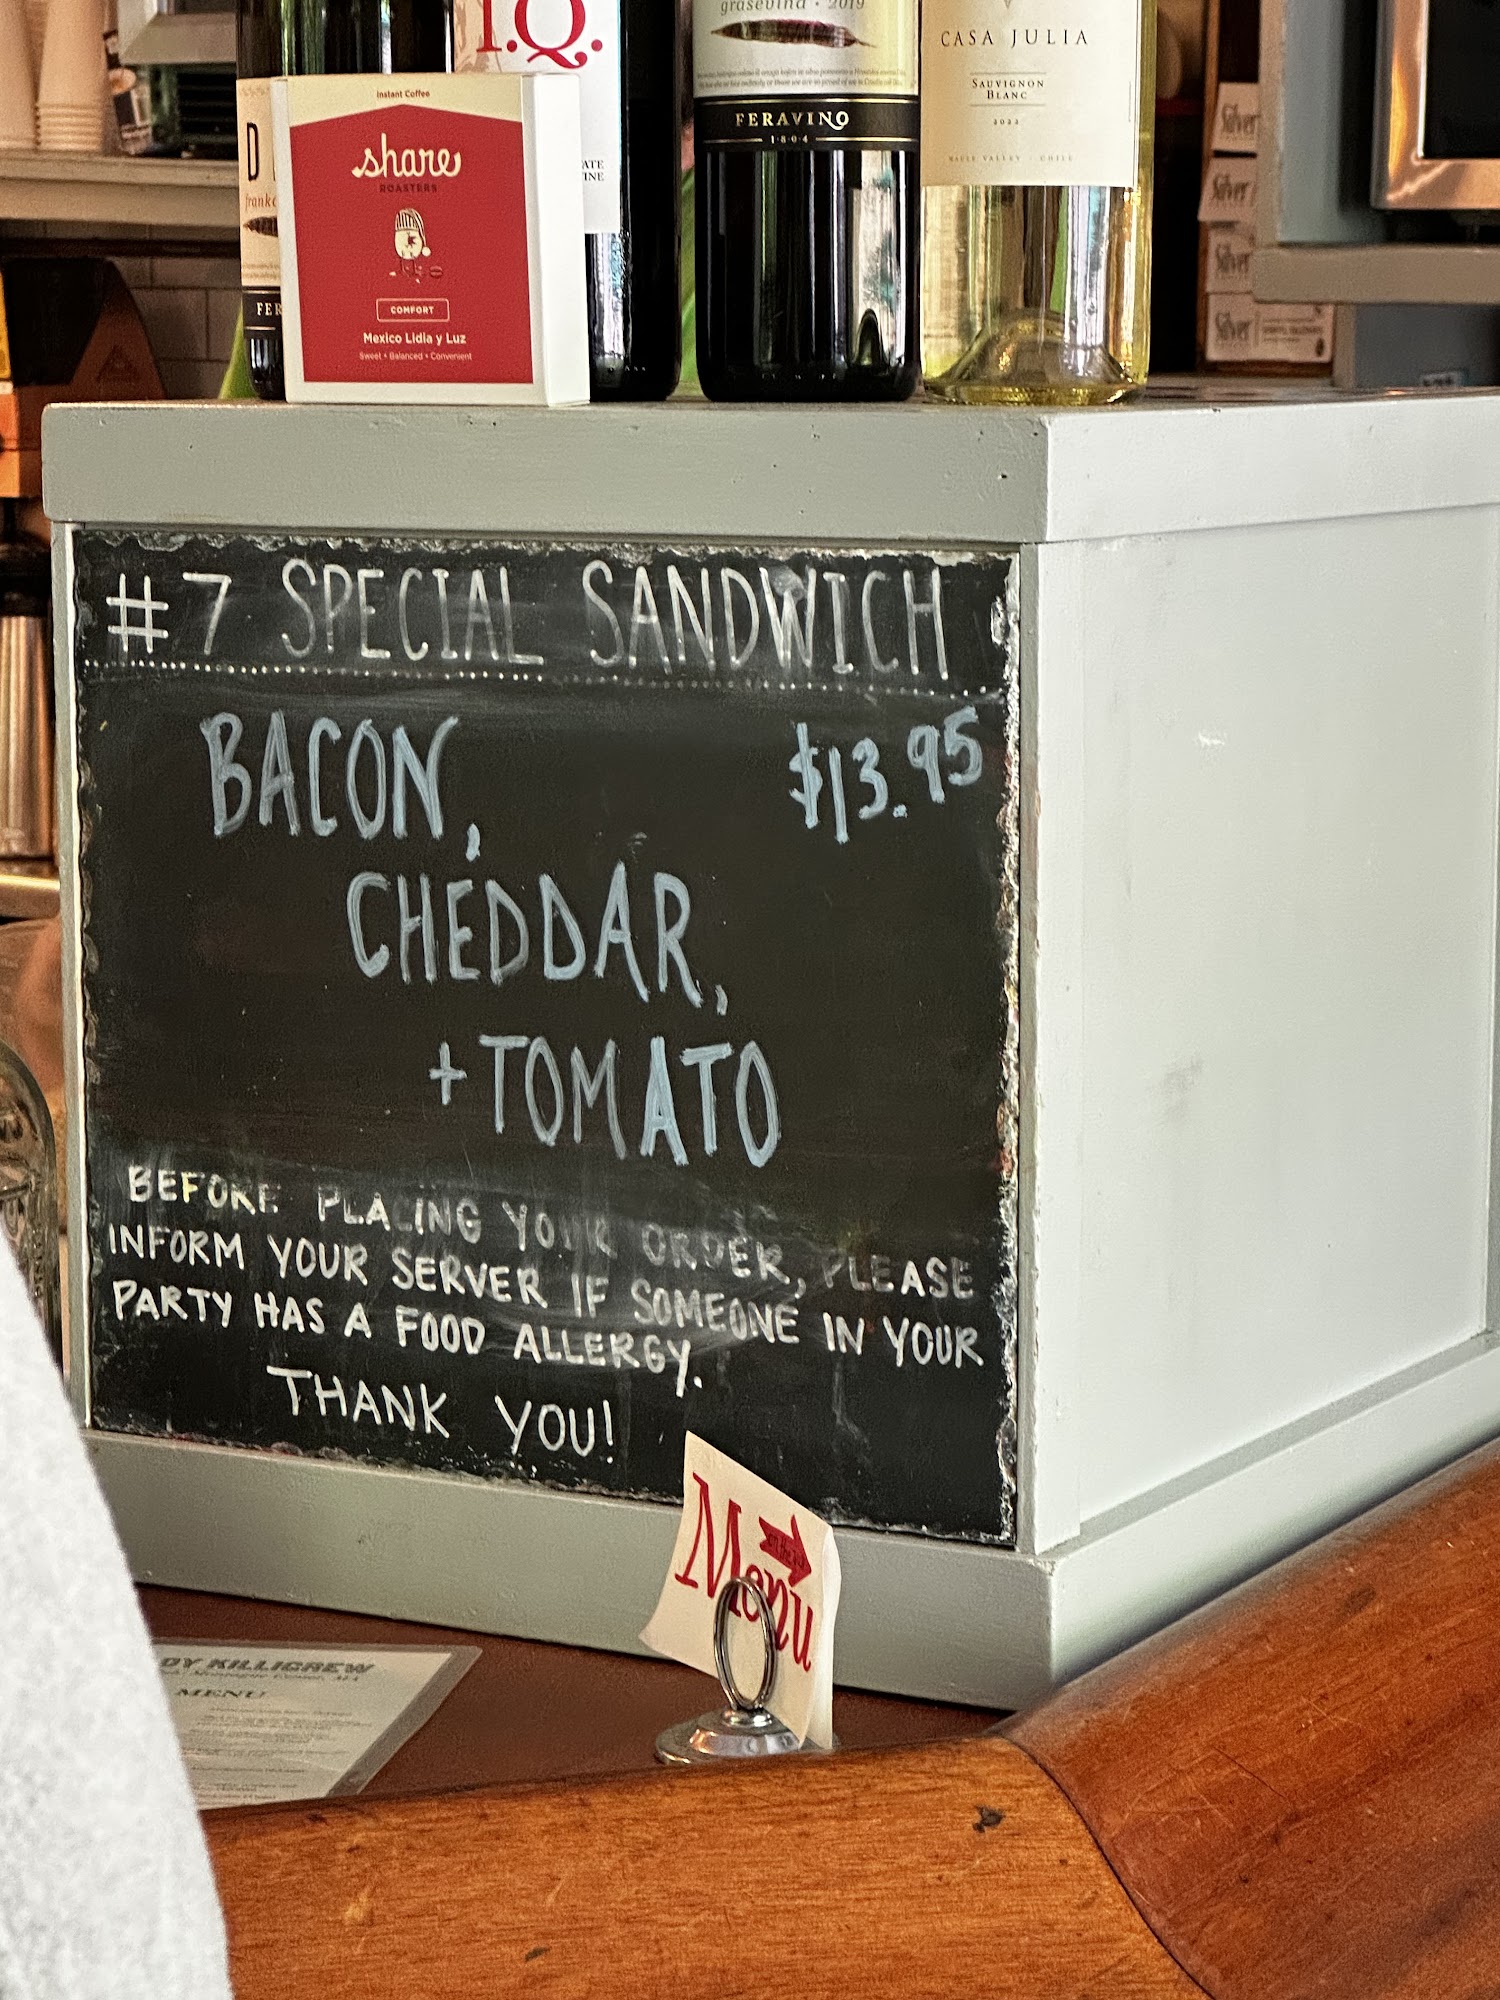 I.Q.
graševina • 2019
CASA JULIA
SAUVIGNON
BLANC
2022
FERAVINO
1·8·0·4
Instant Coffee
share
ROASTERS
COMFORT
Mexico Lidia y Luz
Sweet • Balanced • Convenient
FER
Silver
Silver
Silver
Silver
#7 SPECIAL SANDWICH
BACON, $13.95
CHEDDAR,
+ TOMATO
BEFORE PLACING YOUR ORDER, PLEASE
INFORM YOUR SERVER IF SOMEONE IN YOUR
PARTY HAS A FOOD ALLERGY.
THANK YOU!
Menu
DY KILLIGREW
MENU